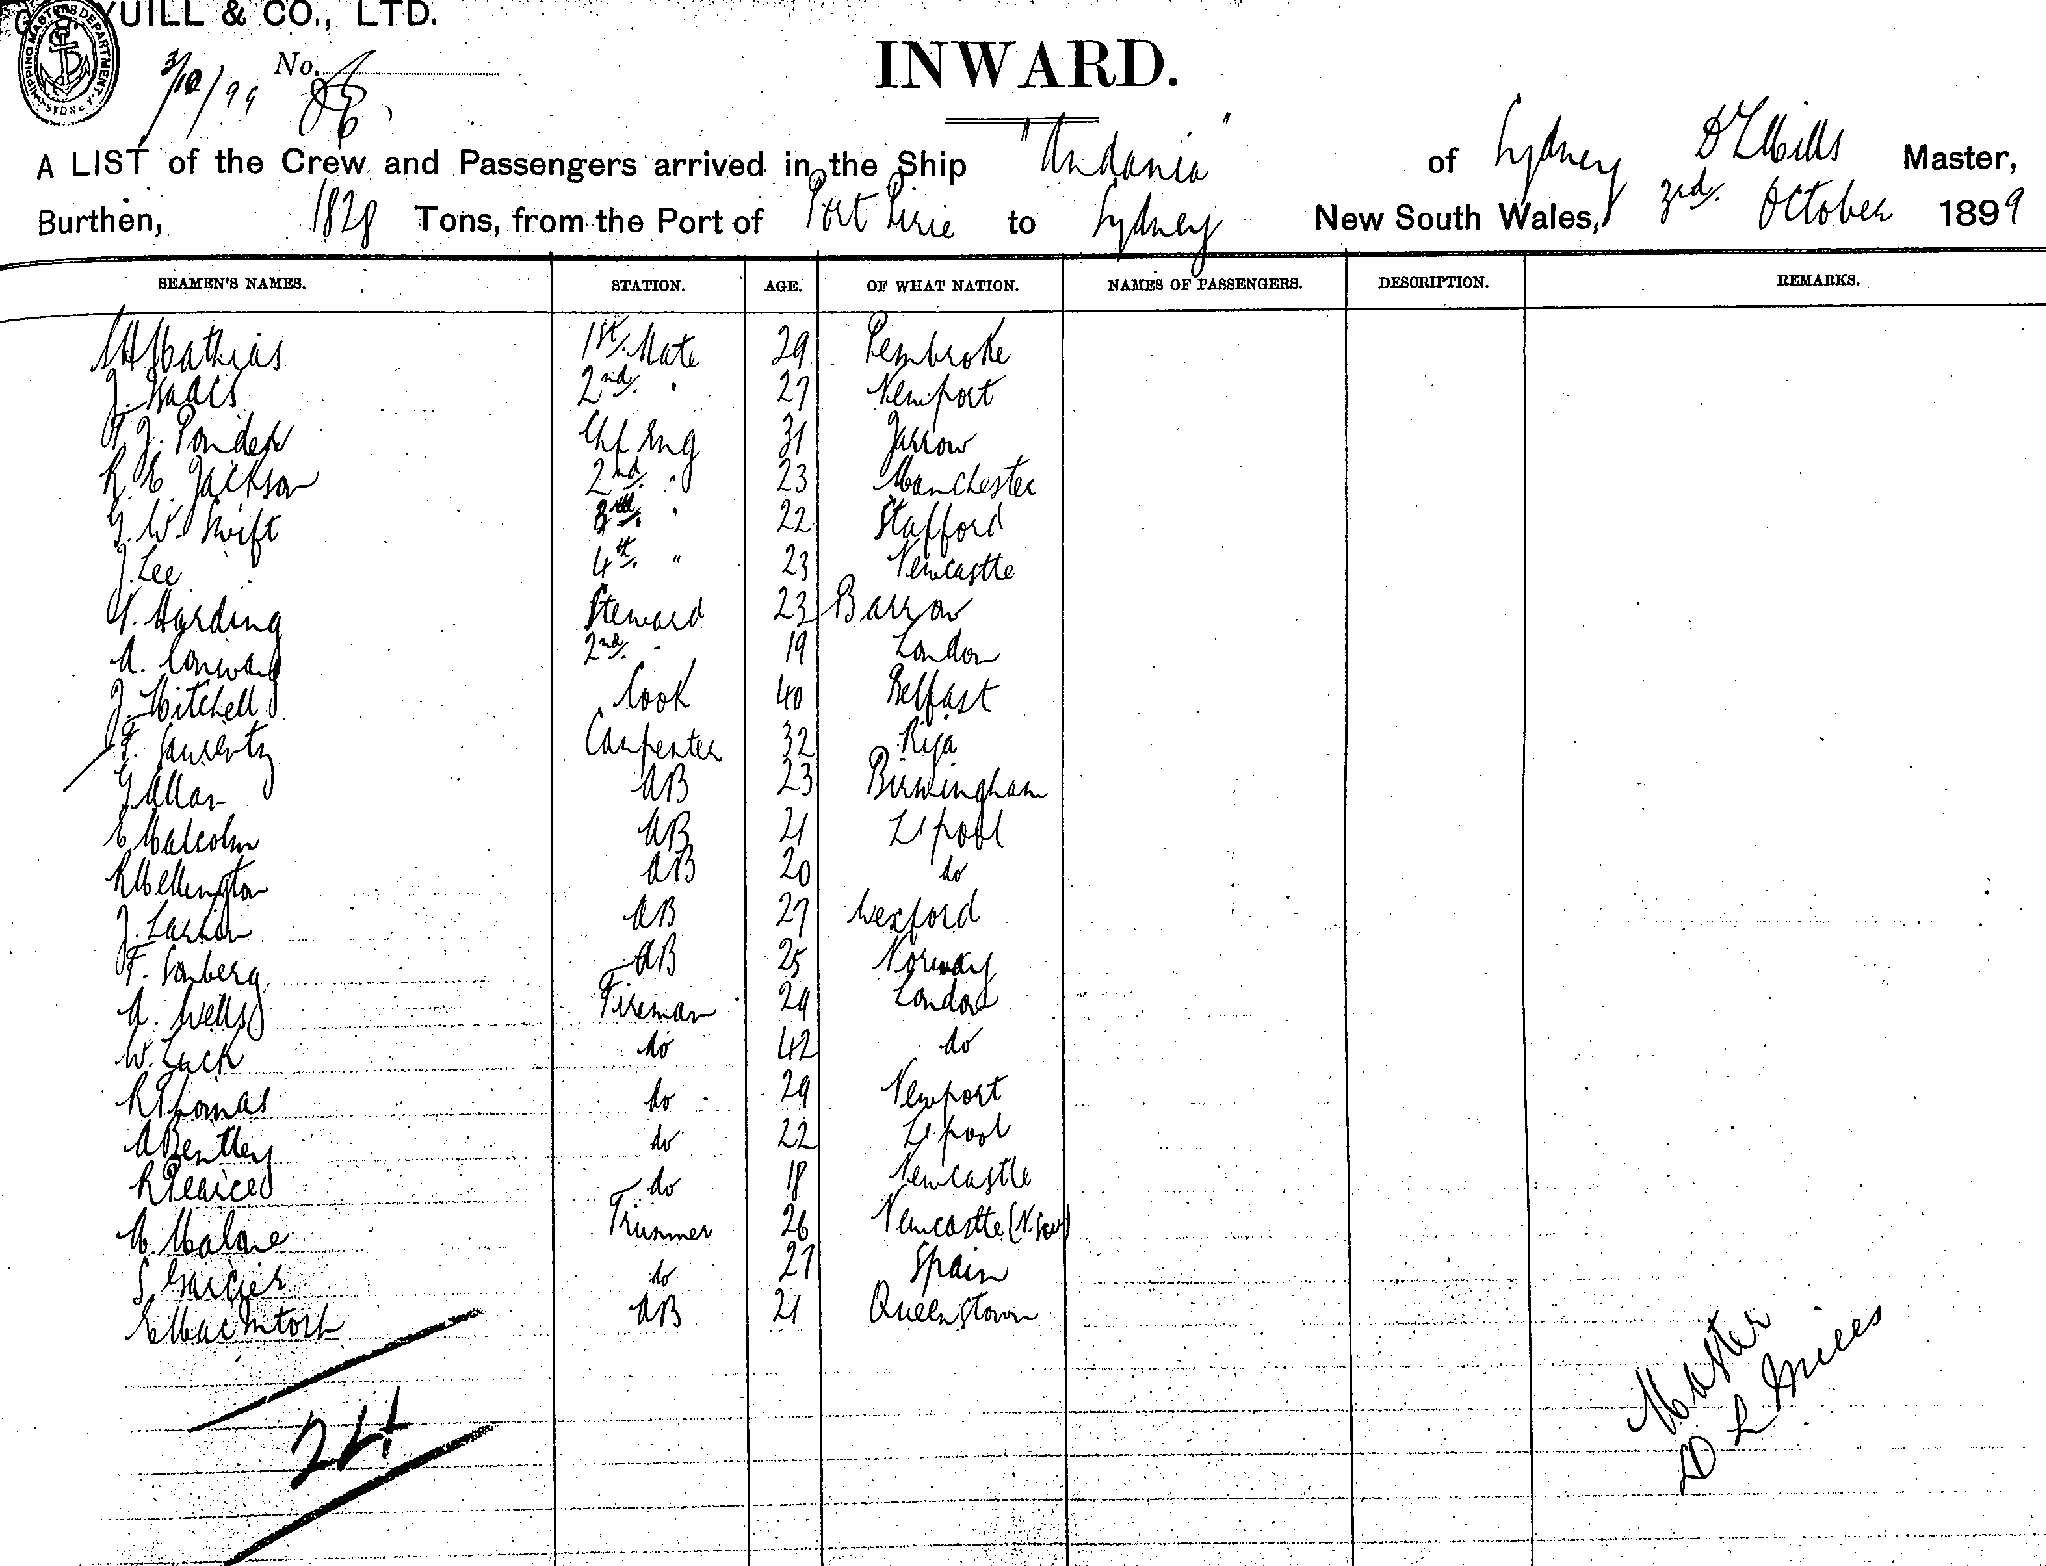 YUILL & CO., LTD.
SHIPPING MASTER'S DEPARTMENT SYDNEY
3/10/99 No.
INWARD.
A LIST of the Crew and Passengers arrived in the Ship "Andania" of Sydney D L Mills Master,
Burthen, 1828 Tons, from the Port of Port Pirie to Sydney New South Wales, 3rd. October 1899
SEAMEN'S NAMES. STATION. AGE. OF WHAT NATION. NAMES OF PASSENGERS. DESCRIPTION. REMARKS.
Mathias 1st. Mate 29 Pembroke
J. Isaacs 2nd. " 27 Newport
J. Ponder Chf Eng 31 Jarrow
R. E. Jackson 2nd. " 23 Manchester
G. W. Swift 3rd. " 22 Stafford
J. Lee 4th. " 23 Newcastle
Harding Steward 23 Barrow
A. Conway 2nd. " 19 London
J. Mitchell Cook 40 Belfast
F. Carpenter 32 Riga
G Allan AB 23 Birmingham
E Malcolm AB 21 L'pool
R Wellington AB 20 do
J. AB 27 Wexford
F. AB 25 Norway
A. Wells Fireman 29 London
W. Luck do 42 do
R Thomas do 29 Newport
A Bentley do 22 L'pool
R Pearce do 18 Newcastle
M. Malone Trimmer 26 Newcastle (N.S.W)
S do 27 Spain
E MacIntosh AB 21 Queenstown
24
Master
D L Mills